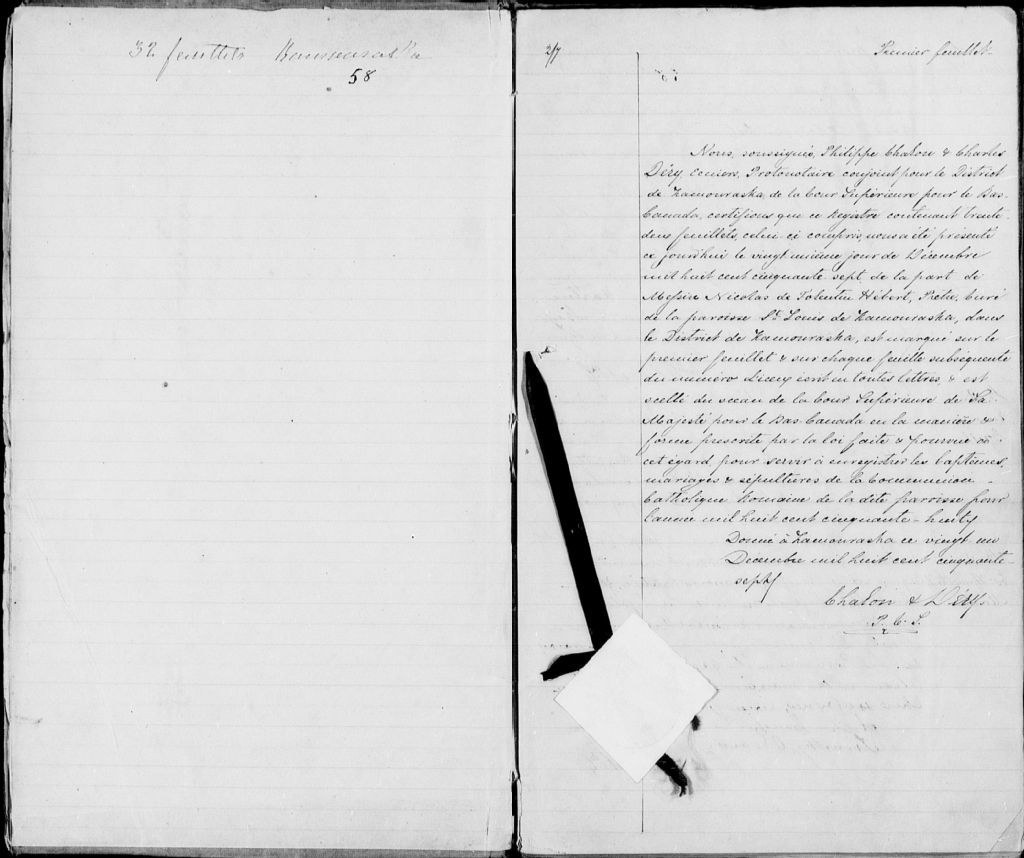 32 feuillets Kamouraska
58
2/7
Premier feuillet
58
Nous, soussignés, Philippe Chalou & Charles
Déry, Ecuiers, Protonotaire conjoint pour le District
de Kamouraska, de la Cour Supérieure pour le Bas-
Canada, certifions que ce Registre contenant trente-
deux feuillets, celui-ci compris, nous a été présenté
ce jourd'hui le vingt unième jour de Décembre
mil huit cent cinquante sept de la part de
Messire Nicolas de Tolentin Hébert, Prêtre, Curé
de la paroisse St. Louis de Kamouraska, dans
le District de Kamouraska, est marqué sur le
premier feuillet & sur chaque feuille subséquente
du numéro écrit en toutes lettres, & est
scellé du sceau de la Cour Supérieure de Sa
Majesté pour le Bas-Canada en la manière &
forme prescrite par la loi faite & pourvue à
cet égard, pour servir à enregistrer les baptêmes,
mariages & sépultures de la Communion
Catholique Romaine de la dite paroisse pour
l'année mil huit cent cinquante-huit
Donné à Kamouraska ce vingt un
Decembre mil huit cent cinquante-
sept
Chalou & Déry
P. C. S.